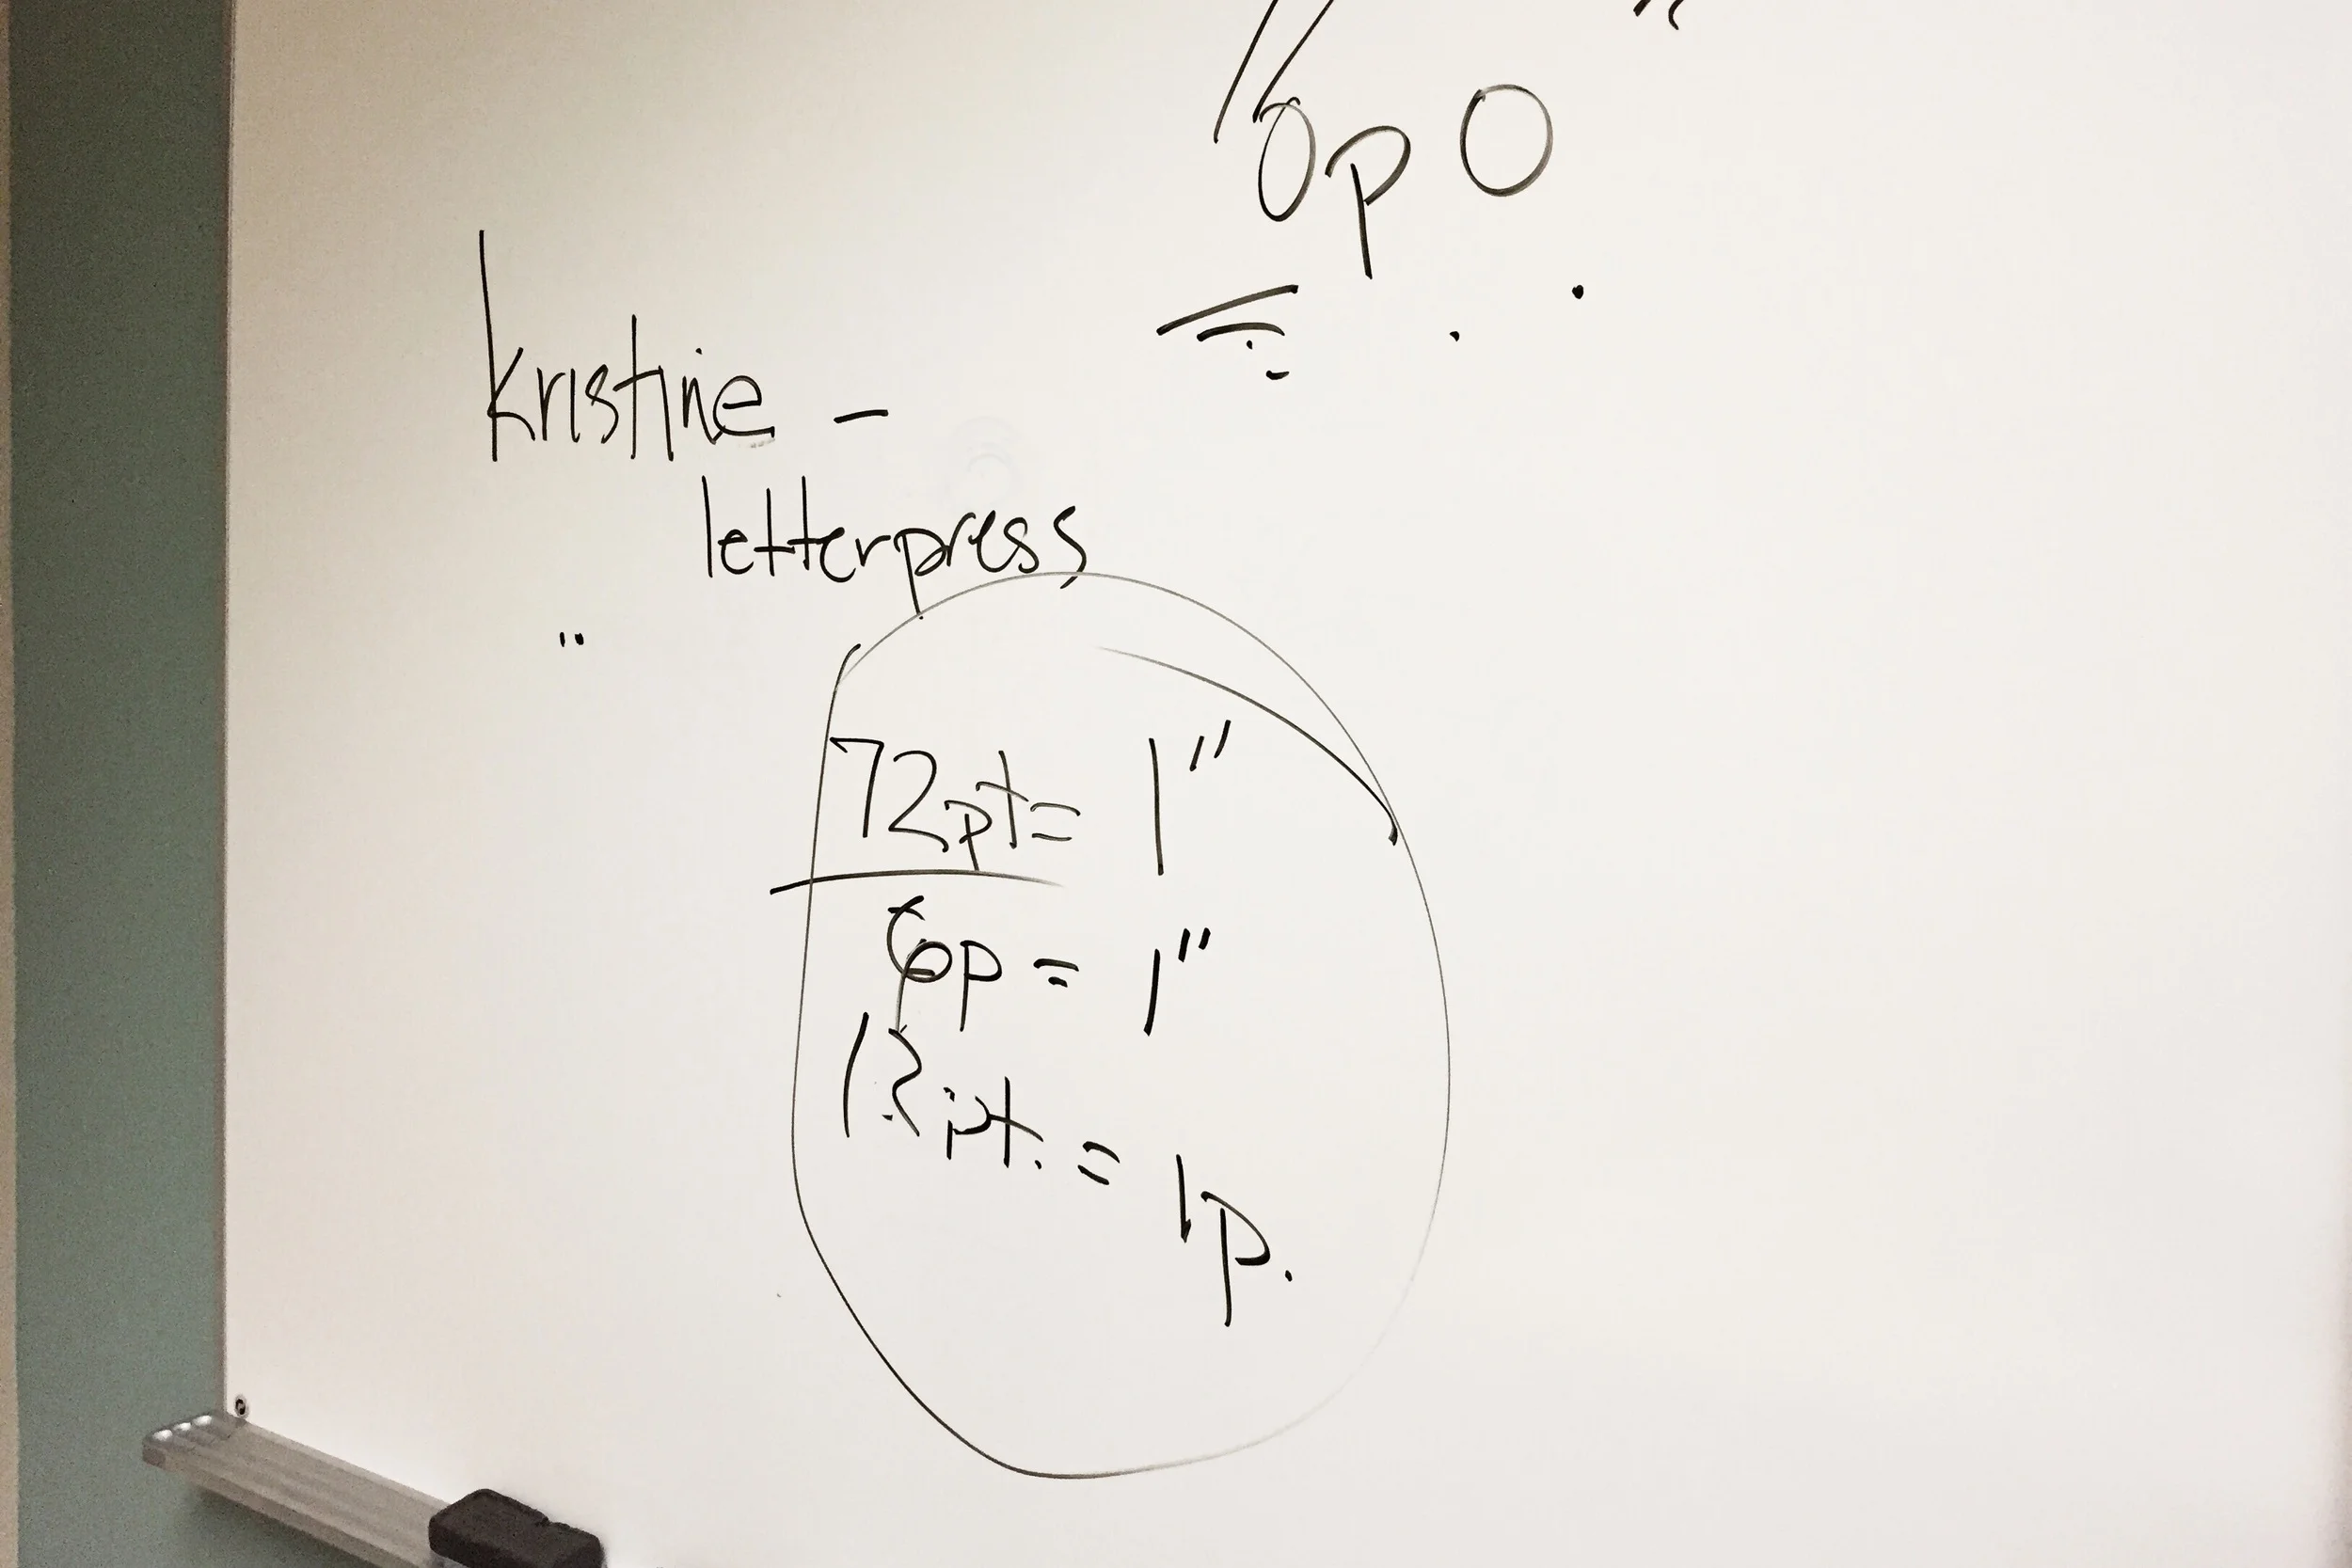 16p0
kristine -
letterpress
"
72pt = 1"
6p = 1"
12pt. = 1p.